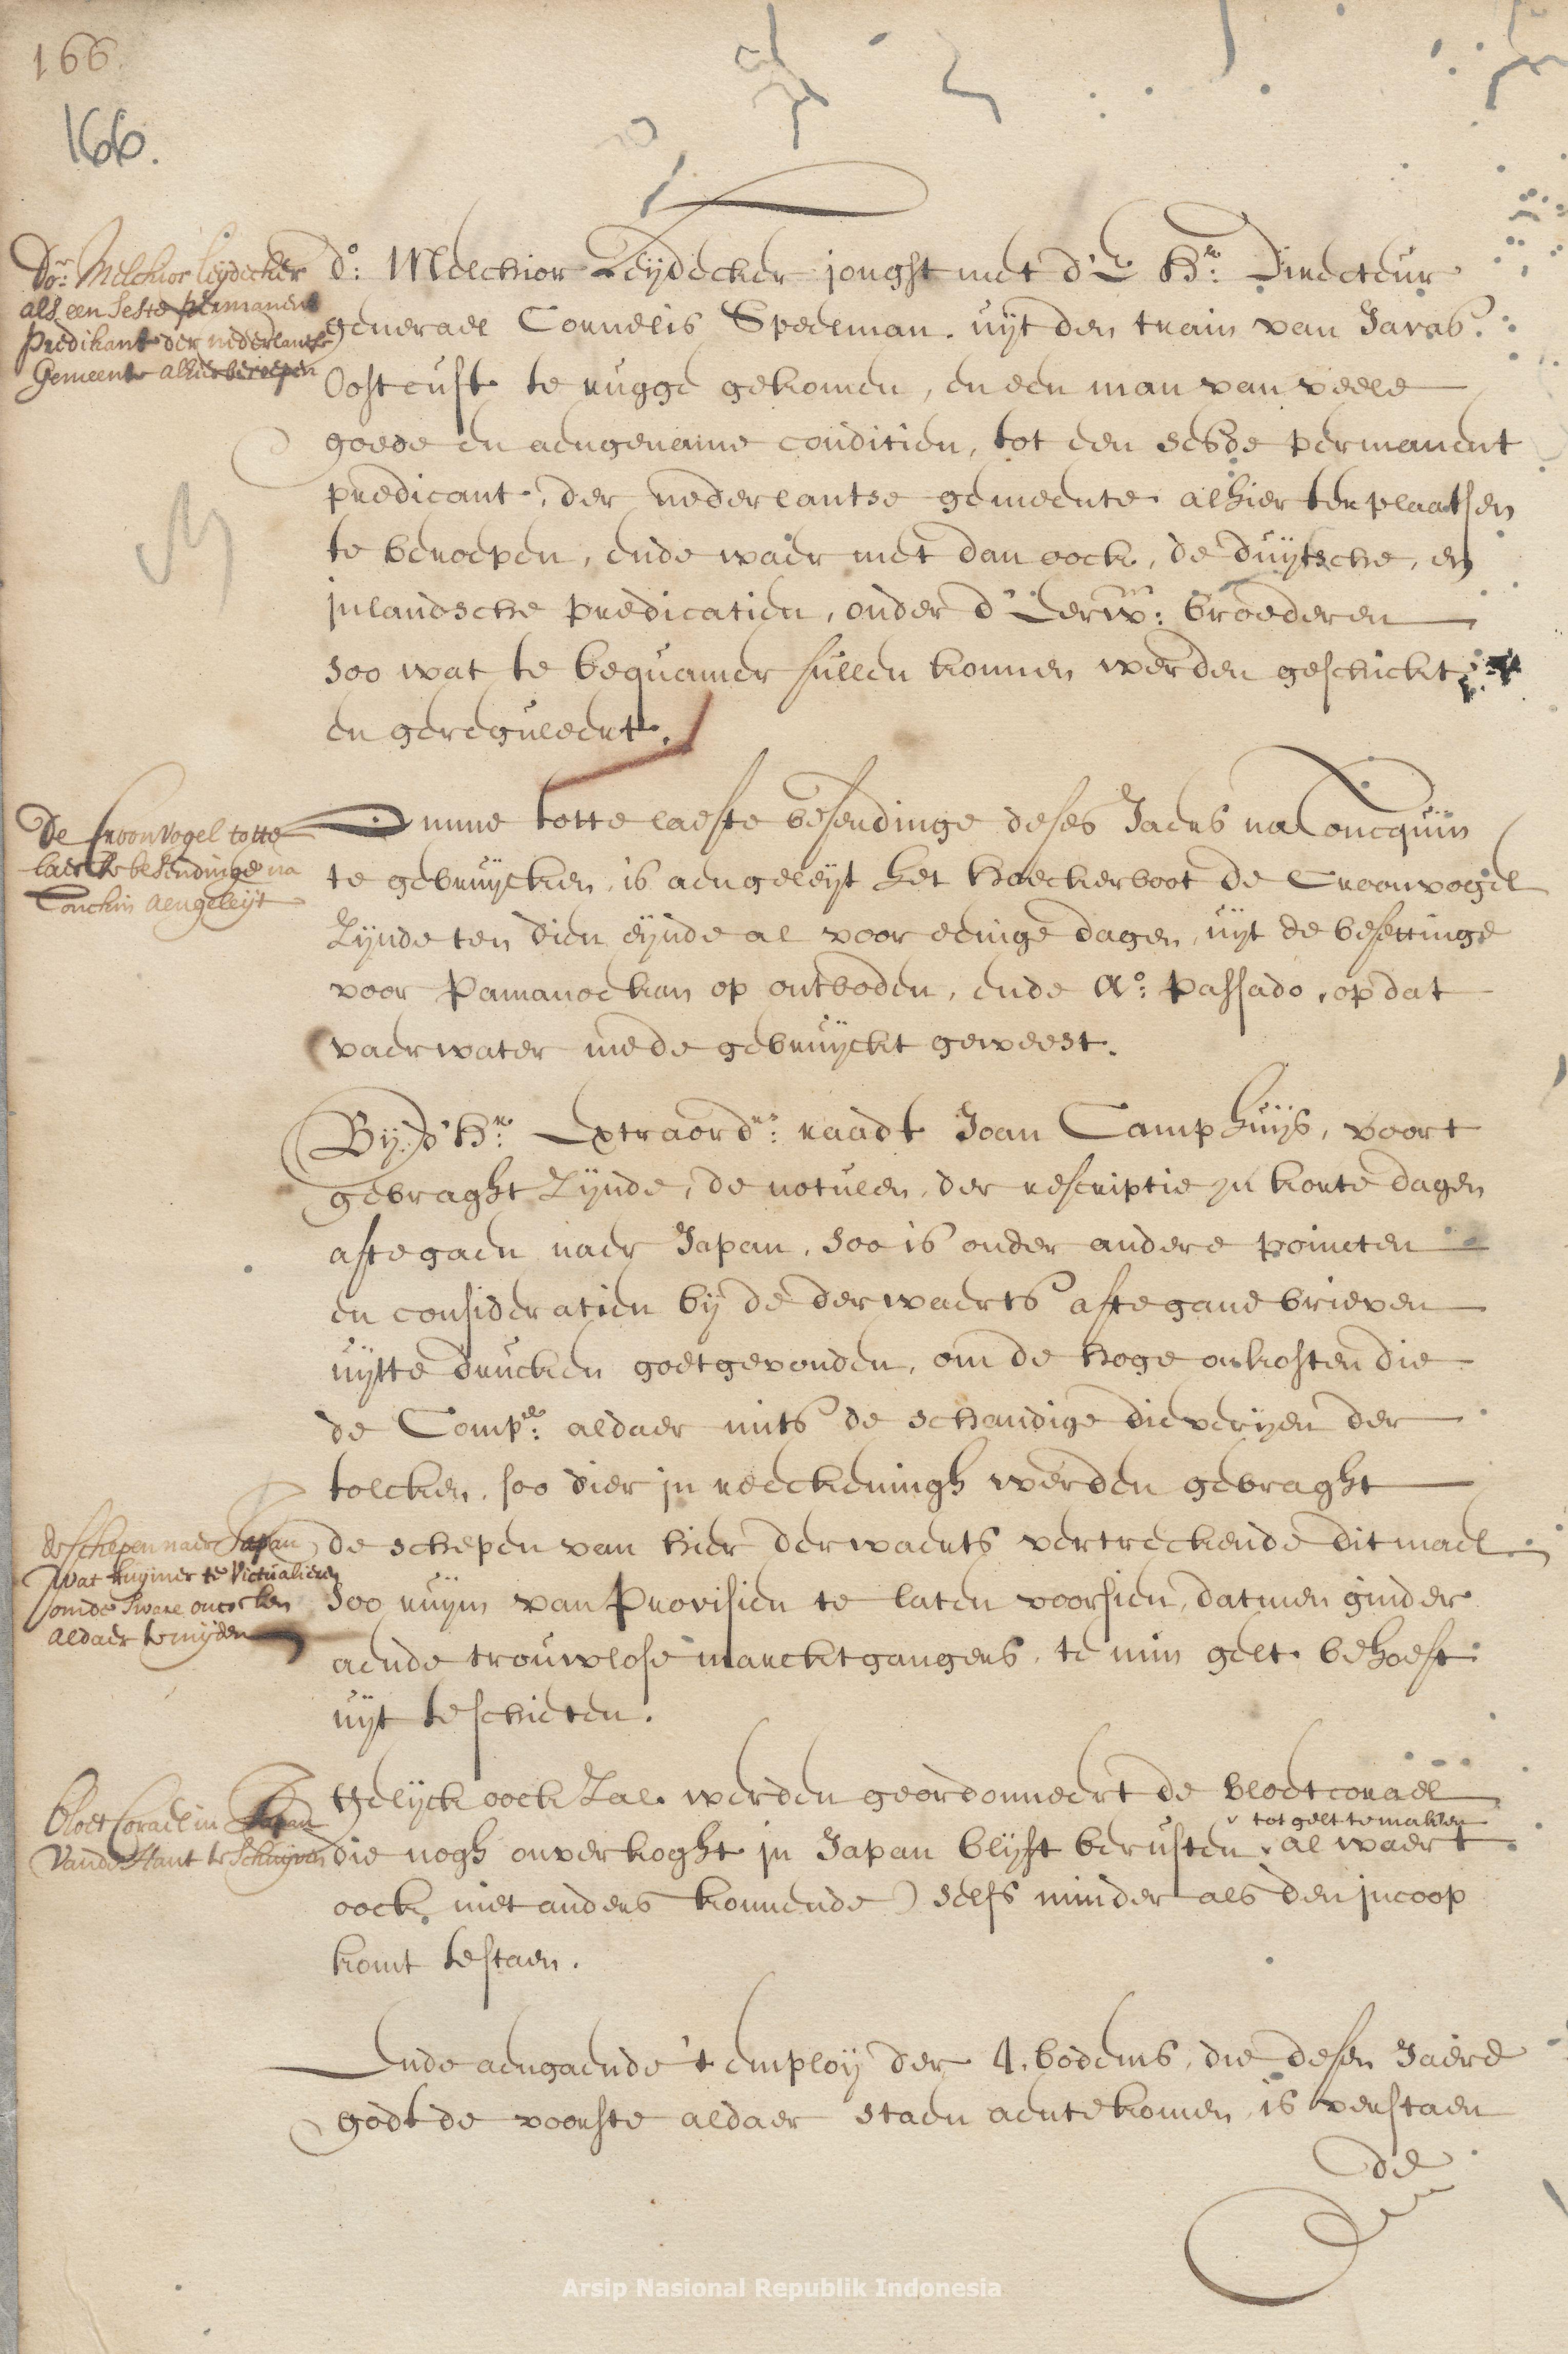 166.
166.
Do:r Melchior Leydecker
als een seste permanent
Predikant der nederlantse
Gemeente alhier beroepen
d:o Melchior Leydecker jonghst met d' E H:r Directeur
generael Cornelis Speelman uyt den train van Javas
Oost cust te rugge gekomen, en een man van veele
goede en aengename conditien, tot een sesde permanent
predicant, der nederlantse gemeente alhier ter plaatsen
te beroepen, ende waer met dan oock, de duytsche, en
jnlandsche predicatien, onder d' Eerw: broederen
soo wat te bequamer sullen konnen werden geschickt
en gereguleert.
De Croonvogel totte
laeste besendinge na
Tonchin aengeleijt
Omme totte laeste besendinge deses Jaers na Toncquin
te gebruycken, is aengeleyt het hoeckerboot de Croonvogel
Zijnde ten dien eynde al voor eenige dagen, uyt de besettinge
voor Pamanoekan op ontboden, ende A:o passado, op dat
vaerwater mede gebruyckt geweest.
By d' H:r Extraord:rs raadt Joan Camphuys, voort
gebraght Zynde, de notulen, der rescriptie jn korte dagen
aftegaen naer Japan, soo is onder andere poincten
en consideratien bij de derwaerts aftegane brieven
uytte drucken goetgevonden, om de hoge onkosten die
de Comp:e aldaer mits de schandige dieveryen der
tolcken, soo dier jn reeckeningh werden gebraght
de schepen naer Japan
wat ruijmer te Victualieren
om de sware oncosten
aldaer te mijden
de schepen van hier derwaerts vertreckende ditmael
soo ruym van Provisien te laten voorsien, datmen ginder
aende trouwlose marcktgangers, te min gelt behoeft
uyt te schieten.
Bloet Corael in Japan
vande hant te Schuijven
Gelyck oock Zal werden geordonneert de bloetcorael
tot gelt te maken
die nogh onverkoght jn Japan blyft berusten, al waer t
oock niet anders konnende) selfs minder als den jncoop
komt te staen.
Ende aengaende 't employ der 4. bodems, die desen Jaere
godt de voorste aldaer staen aente komen, is verstaen
de
Arsip Nasional Republik Indonesia